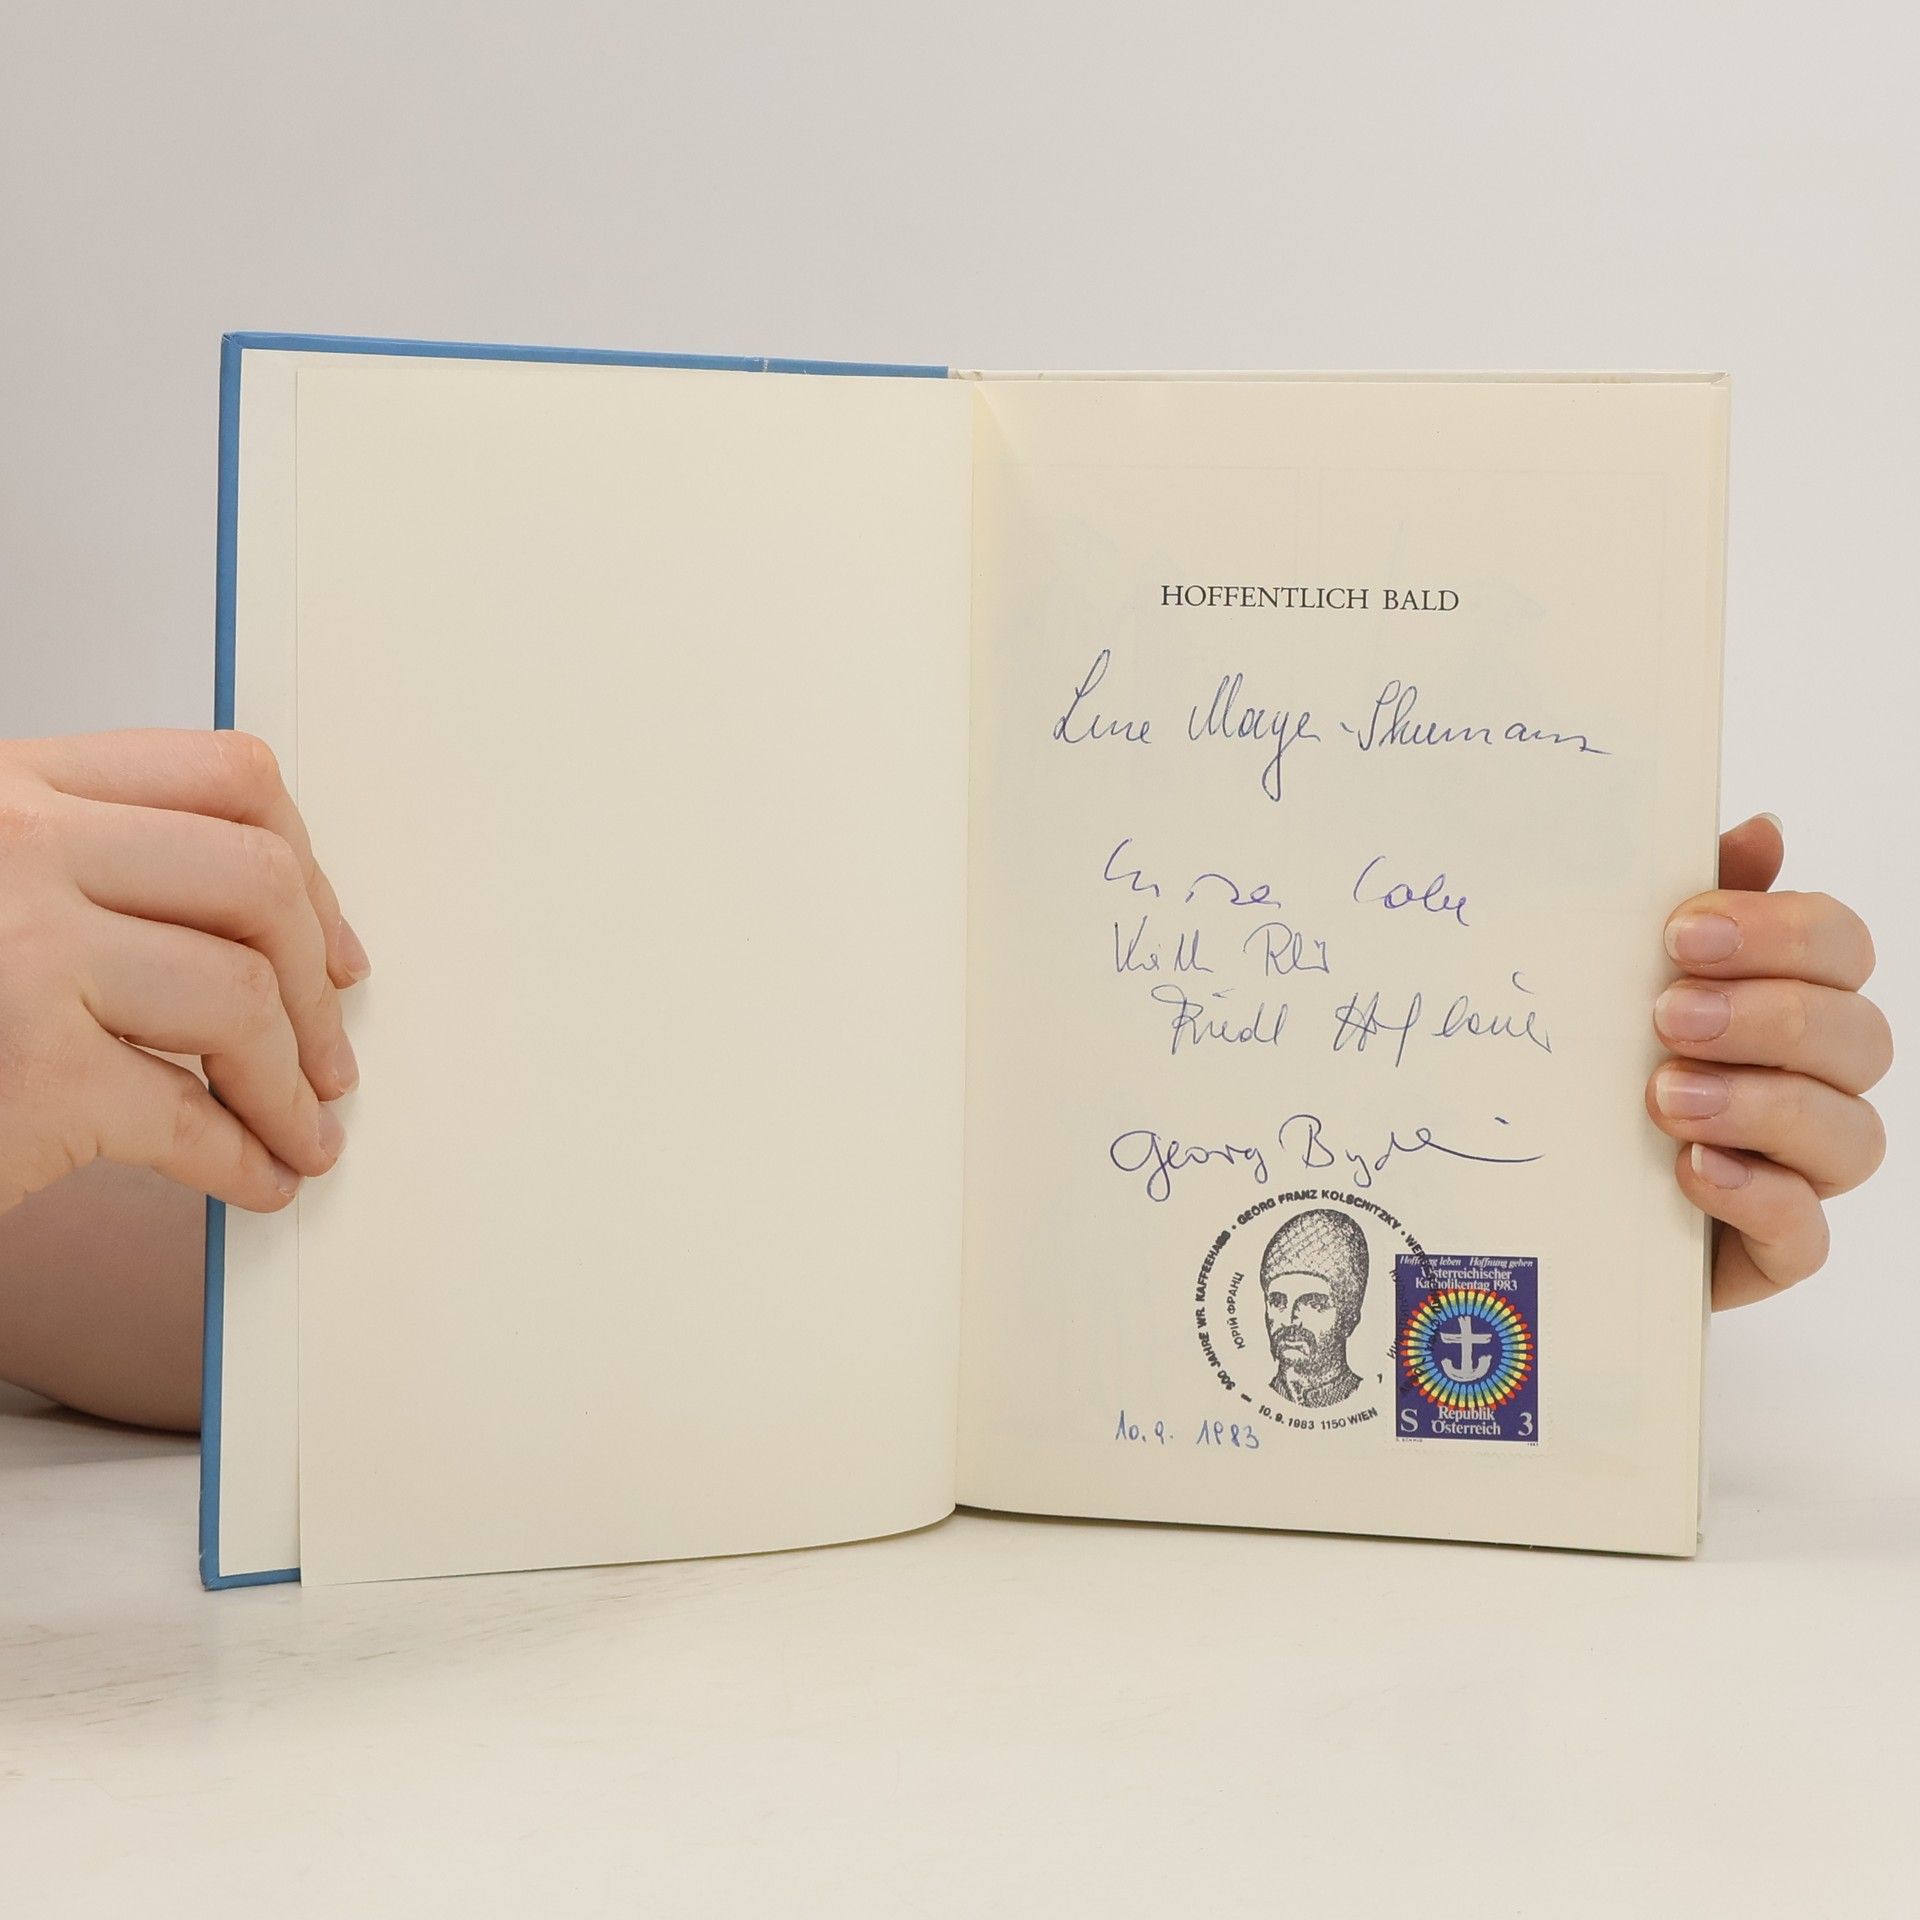 HOFFENTLICH BALD
Lene Mayer-Skumanz
Käth
Friedl Hofbauer
Georg Bydlinski
300 JAHRE WR. KAFFEEHAUS • GEORG FRANZ KOLSCHITZKY •
ЮРІЙ ФРАНЦ
1
10. 9. 1983 1150 WIEN
Hoffnung leben Hoffnung geben
Österreichischer
Katholikentag 1983
S Republik Österreich 3
10. 9. 1983